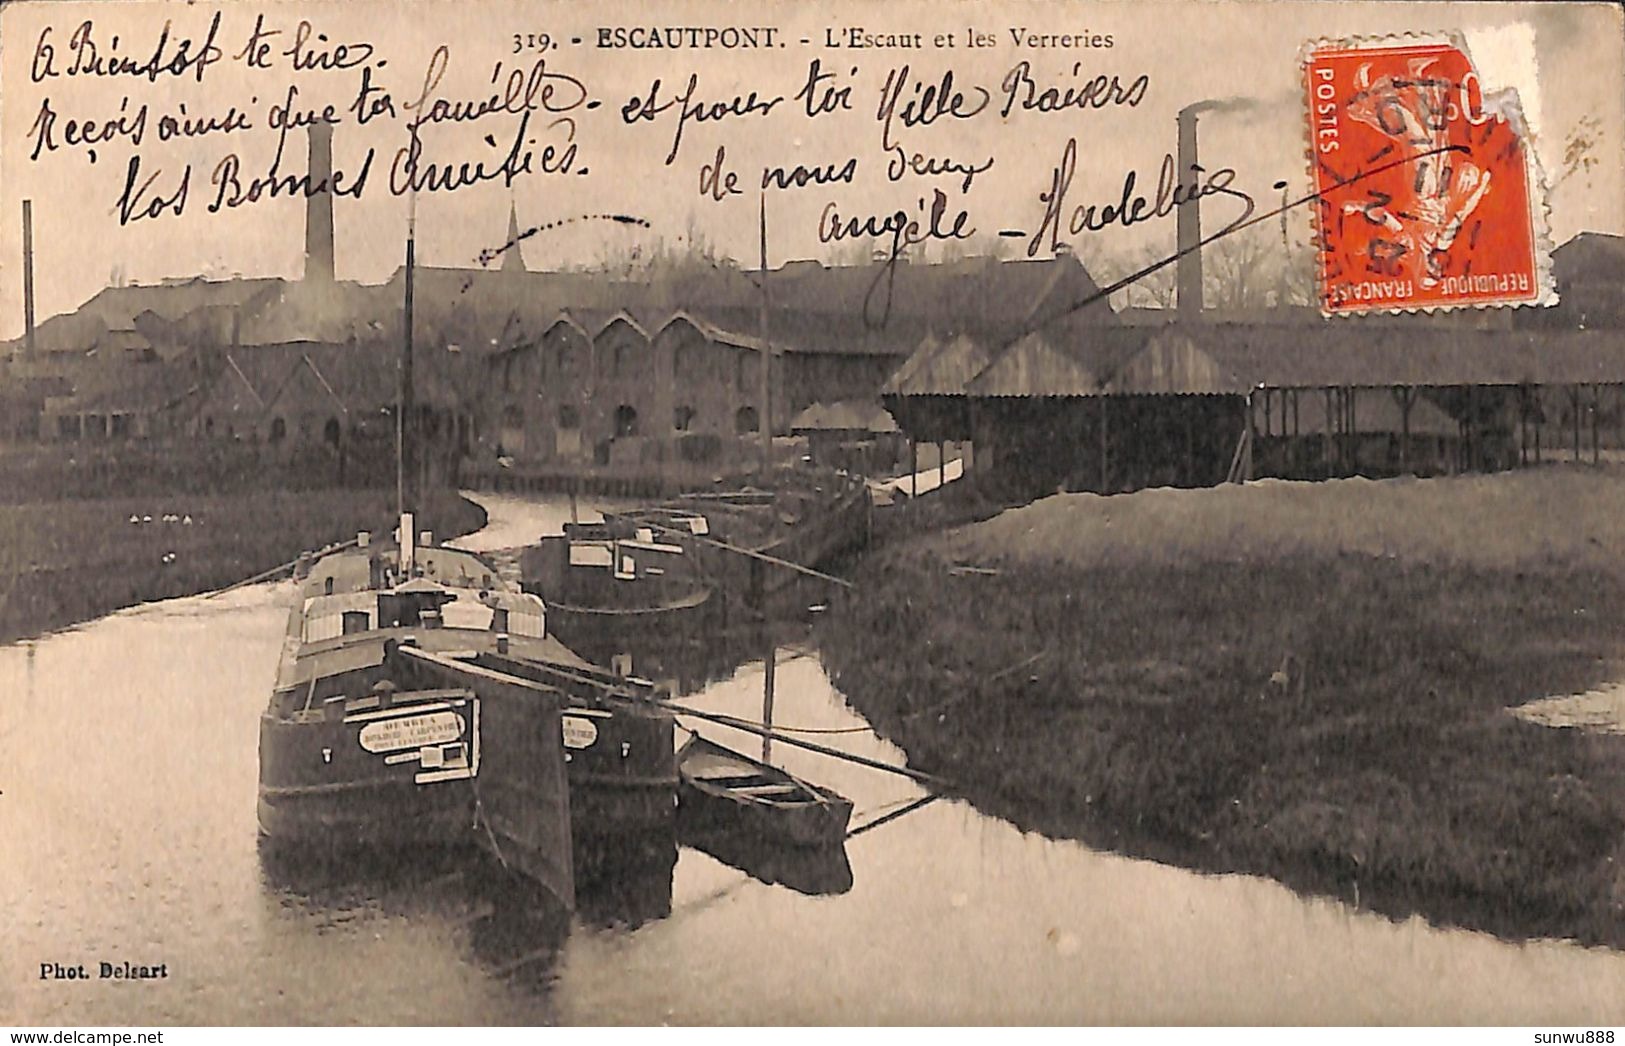 319. - ESCAUTPONT. - L'Escaut et les Verreries
A Bientot te lire.
Reçois ainsi que ta famille. et pour toi Mille Baisers
Vos Bonnes Amitiés. de nous deux
Angèle - Madeleine
POSTES
REPUBLIQUE FRANÇAISE
DEMBEA
Phot. Delsart
sunwu888